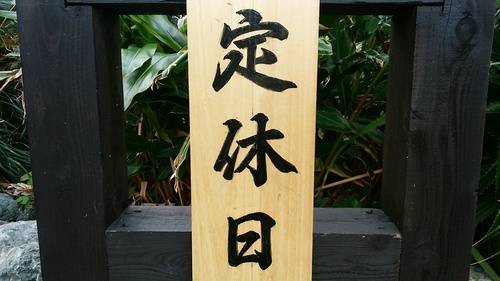 定休日